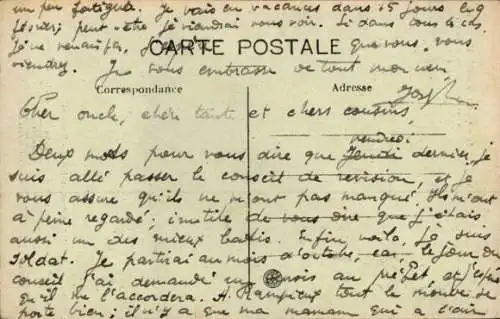 un peu fatiguée. Je vais en vacances dans 15 jours le 9
février; peut-être je viendrai vous voir. Si dans tous le cas,
je ne venais pas, j'espère que vous, vous
CARTE POSTALE
viendrez. Je vous embrasse de tout mon cœur
Correspondance
Adresse
Cher oncle, chère tante et chers cousins,
vendredi
Deux mots pour vous dire que Jeudi dernier, je
suis allé passer le conseil de revision, et je
vous assure qu'ils ne m'ont pas manqué. Ils m'ont
à peine regardé; inutile de vous dire que j'étais
aussi un des mieux batis. Enfin voila, je suis
soldat. Je partirai au mois d'octobre, car le jour du
conseil j'ai demandé un mois au préfet et j'espère
qu'il me l'accordera. A tout le monde se
porte bien; il n'y a que ma maman qui a l'air